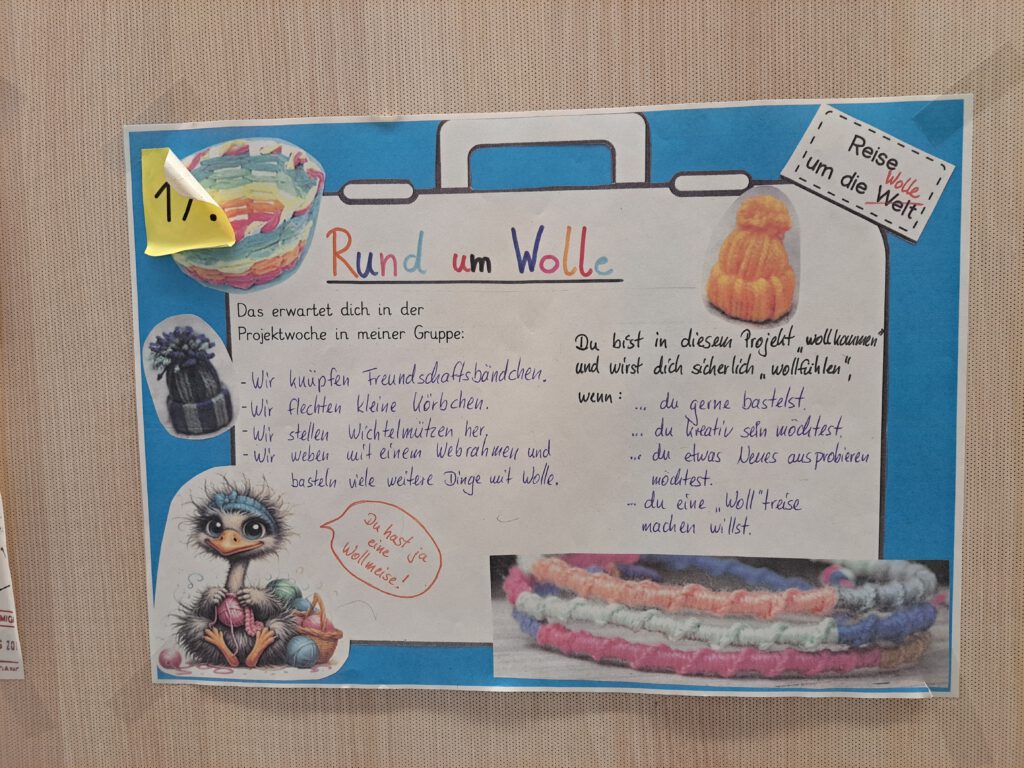 17.
Reise
Wolle
um die Welt
Rund um Wolle
Das erwartet dich in der
Projektwoche in meiner Gruppe:
- Wir knüpfen Freundschaftsbändchen.
- Wir flechten kleine Körbchen.
- Wir stellen Wichtelmützen her.
- Wir weben mit einem Webrahmen und
basteln viele weitere Dinge mit Wolle.
Du hast ja
eine
Wollmeise!
Du bist in diesem Projekt „wollkommen"
und wirst dich sicherlich „wollfühlen",
wenn:
... du gerne bastelst.
... du kreativ sein möchtest.
... du etwas Neues ausprobieren
möchtest.
... du eine „Woll"treise
machen willst.